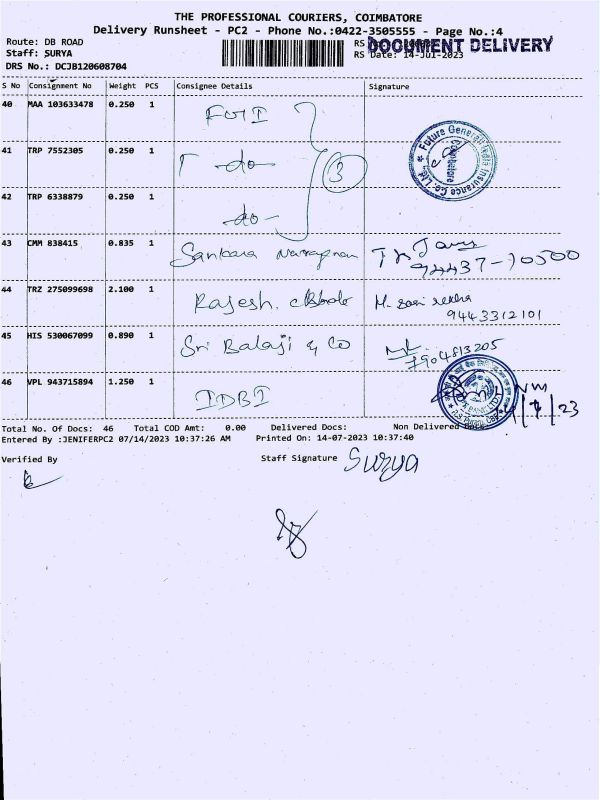 THE PROFESSIONAL COURIERS, COIMBATORE
Delivery Runsheet - PC2 - Phone No.:0422-3505555 - Page No.:4
Route: DB ROAD
Staff: SURYA
DRS No.: DCJB120608704
RS
DOCUMENT DELIVERY
RS Date: 14-Jul-2023
S No Consignment No Weight PCS Consignee Details Signature
40 MAA 103633478 0.250 1
41 TRP 7552305 0.250 1 -do-
3
Future Generali India Insurance Co. Ltd.
Coimbatore
42 TRP 6338879 0.250 1 -do-
43 CMM 838415 0.835 1 Sankara Narayanan
94437-70500
44 TRZ 275099698 2.100 1 Rajesh
9443312101
45 HIS 530067099 0.890 1 Sri Balaji & Co
7904813205
46 VPL 943715894 1.250 1 IDBI
Total No. Of Docs: 46 Total COD Amt: 0.00 Delivered Docs: Non Delivered
Entered By :JENIFERPC2 07/14/2023 10:37:26 AM Printed On: 14-07-2023 10:37:40
Verified By
Staff Signature Surya